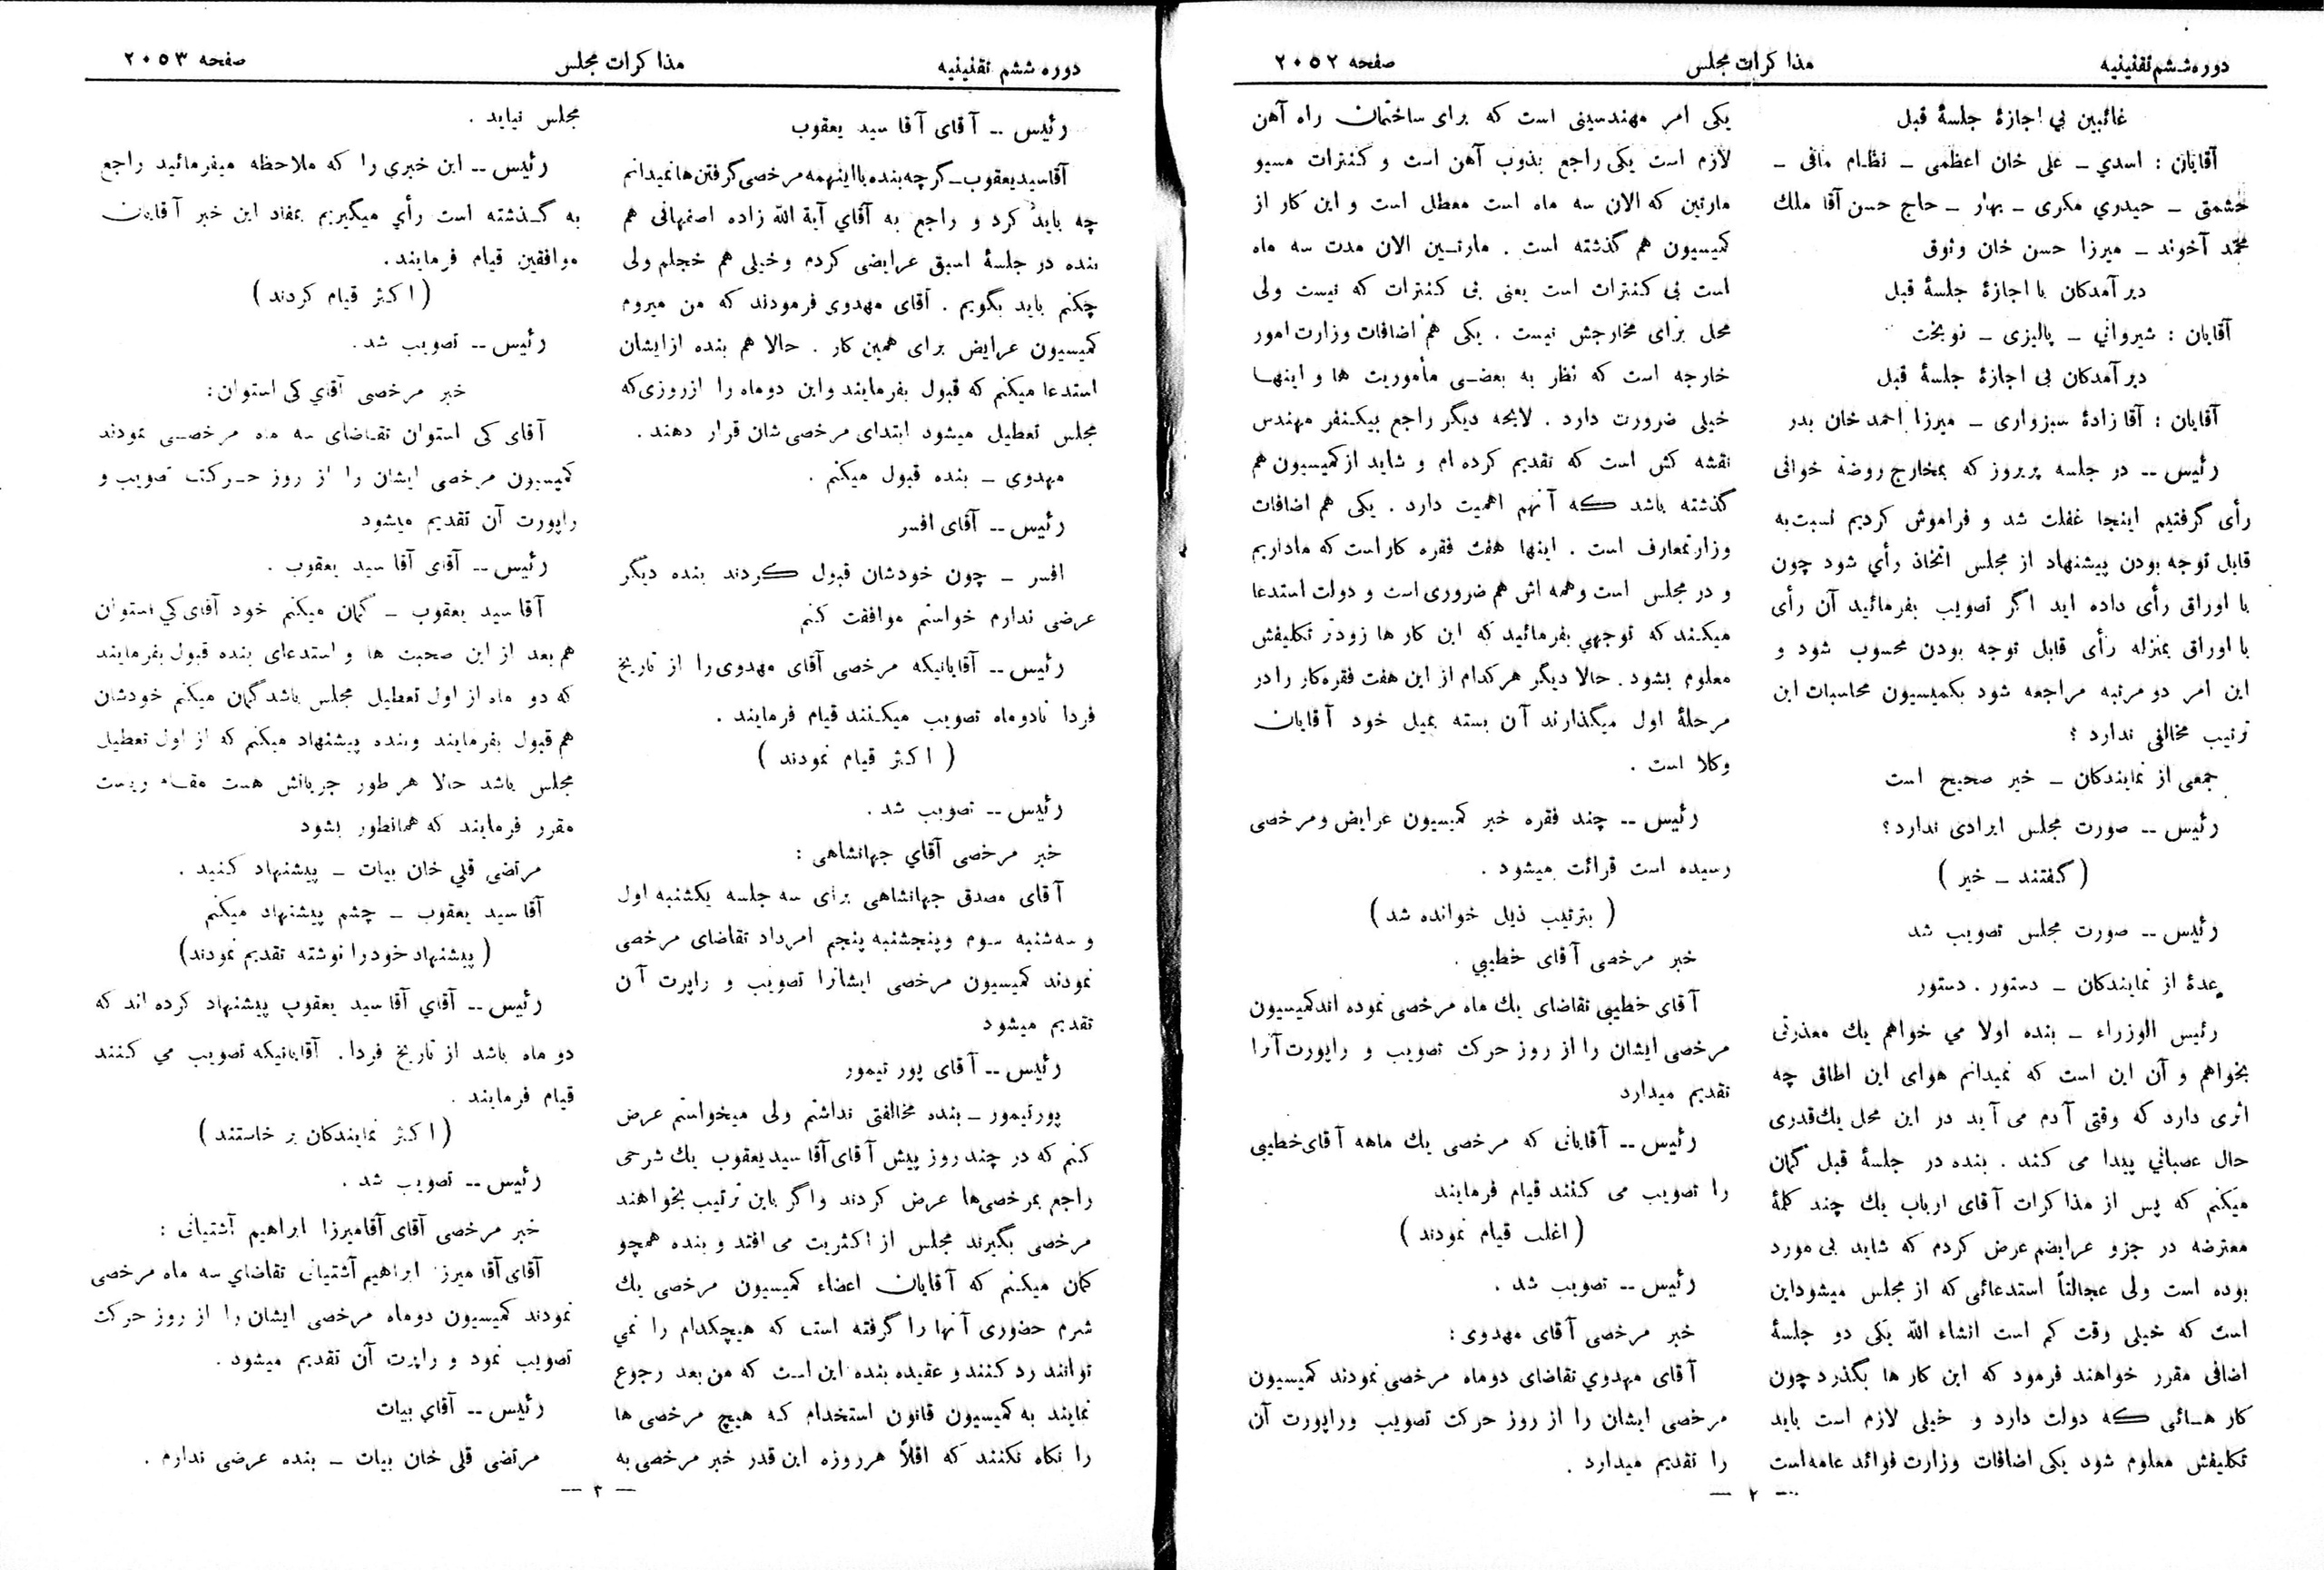 دوره ششم تقنینیه
مذاکرات مجلس
صفحه ۲۰۵۲
غائبین بی اجازهٔ جلسهٔ قبل
آقایان : اسدي ــ علی خان اعظمی ــ نظام مافی ــ
حشمتی ــ حیدري مکری ــ بهار ــ حاج حسن آقا ملك
محمّد آخوند ــ میرزا حسن خان وثوق
دیر آمدکان با اجازهٔ جلسهٔ قبل
آقایان : شیرواني ــ پالیزی ــ نوبخت
دیر آمدکان بی اجازهٔ جلسهٔ قبل
آقایان : آقا زادهٔ سبزواری ــ میرزا احمد خان بدر
رئیس ــ در جلسه پریروز که بمخارج روضه خوانی
رأی گرفتیم اینجا غفلت شد و فراموش کردیم نسبت به
قابل توجه بودن پیشنهاد از مجلس اتخاذ رأي شود چون
با اوراق رأی داده اید اگر تصویب بفرمائید آن رأی
با اوراق بمنزله رأی قابل توجه بودن محسوب شود و
این امر دو مرتبه مراجعه شود بکمیسیون محاسبات این
ترتیب مخالفی ندارد ؟
جمعی از نمایندکان ــ خیر صحیح است
رئیس ــ صورت مجلس ایرادی ندارد؟
( گفتند ــ خیر )
رئیس ــ صورت مجلس تصویب شد
عدهٔ از نمایندکان ــ دستور . دستور
رئیس الوزراء ــ بنده اولا می خواهم یك معذرتی
بخواهم و آن این است که نمیدانم هوای این اطاق چه
اثری دارد که وقتی آدم می آید در این محل یك قدری
حال عصباني پیدا می کند . بنده در جلسهٔ قبل گمان
میکنم که پس از مذاکرات آقای ارباب یك چند کلمهٔ
معترضه در جزو عرایضم عرض کردم که شاید بی مورد
بوده است ولی عجالتاً استدعائی که از مجلس میشود این
است که خیلی وقت کم است انشاء اللّه یکی دو جلسهٔ
اضافی مقرر خواهند فرمود که این کار ها بگذرد چون
کار هـائی که دولت دارد و خیلی لازم است باید
تکلیفش معلوم شود یکی اضافات وزارت فوائد عامه است
یکی امر مهندسینی است که برای ساختمان راه آهن
لازم است یکی راجع بذوب آهن است و کنترات مسیو
مارتین که الان سه ماه است معطل است و این کار از
کمیسیون هم گذشته است . مارتـین الان مدت سه ماه
است بی کنترات است یعنی بی کنترات که نیست ولی
محل برای مخارجش نیست . یکی هم اضافات وزارت امور
خارجه است که نظر به بعضـی مأموریت ها و اینهـا
خیلی ضرورت دارد . لایحه دیگر راجع بیکنفر مهندس
نقشه کش است که تقدیم کرده ام و شاید از کمیسیون هم
گذشته باشد که آنهم اهمیت دارد . یکی هم اضافات
وزارتمعارف است . اینها هفت فقره کار است که ماداریم
و در مجلس است و همه اش هم ضروری است و دولت استدعا
میکند که توجهي بفرمائید که این کار ها زودتر تکلیفش
معلوم بشود . حالا دیگر هر کدام از این هفت فقره کار را در
مرحلهٔ اول میگذارند آن بسته بمیل خود آقایان
وکلا است .
رئیس ــ چند فقره خبر کمیسیون عرایض و مرخصی
رسیده است قرائت میشود .
( بترتیب ذیل خوانده شد )
خبر مرخصی آقای خطیبي .
آقای خطیبي تقاضای یك ماه مرخصی نموده اند کمیسیون
مرخصی ایشان را از روز حرکت تصویب و راپورت آنرا
تقدیم میدارد
رئیس ــ آقایانی که مرخصی یك ماهه آقای خطیبی
را تصویب می کنند قیام فرمایند
( اغلب قیام نمودند )
رئیس ــ تصویب شد .
خبر مرخصی آقای مهدوی :
آقای مهدوي تقاضای دو ماه مرخصی نمودند کمیسیون
مرخصی ایشان را از روز حرکت تصویب و راپورت آن
را تقدیم میدارد .
— ۲ —
دوره ششم تقنینیه
مذاکرات مجلس
صفحه ۲۰۵۳
رئیس ــ آقای آقا سید یعقوب
آقاسید یعقوب ــ گرچه بنده با اینهمه مرخصی گرفتن ها نمیدانم
چه باید کرد و راجع به آقاي آیة اللّه زاده اصفهانی هم
بنده در جلسهٔ اسبق عرایضی کردم و خیلی هم خجلم ولی
چکنم باید بگویم . آقای مهدوی فرمودند که من میروم
کمیسیون عرایض برای همین کار . حالا هم بنده از ایشان
استدعا میکنم که قبول بفرمایند و این دوماه را از روزی که
مجلس تعطیل میشود ابتدای مرخصی شان قرار دهند .
مهدوی ــ بنده قبول میکنم .
رئیس ــ آقای افسر
افسر ــ چون خودشان قبول کردند بنده دیگر
عرضی ندارم خواستم موافقت کنم
رئیس ــ آقایانیکه مرخصی آقای مهدوی را از تاریخ
فردا تا دوماه تصویب میکنند قیام فرمایند .
( اکثر قیام نمودند )
رئیس ــ تصویب شد .
خبر مرخصی آقاي جهانشاهی :
آقای مصدق جهانشاهی برای سه جلسه یکشنبه اول
و سه شنبه سوم و پنجشنبه پنجم امرداد تقاضای مرخصی
نمودند کمیسیون مرخصی ایشانرا تصویب و راپرت آن
تقدیم میشود
رئیس ــ آقای پور تیمور
پورتیمور ــ بنده مخالفتی نداشتم ولی میخواستم عرض
کنم که در چند روز پیش آقای آقا سید یعقوب یك شرحی
راجع بمرخصی ها عرض کردند و اگر باین ترتیب بخواهند
مرخصی بگیرند مجلس از اکثریت می افتد و بنده همچو
گمان میکنم که آقایان اعضاء کمیسیون مرخصی یك
شرم حضوری آنها را گرفته است که هیچکدام را نمي
توانند رد کنند و عقیده بنده این است که من بعد رجوع
نمایند به کمیسیون قانون استخدام که هیچ مرخصی ها
را نکاه نکنند که اقلاً هر روزه این قدر خبر مرخصی به
مجلس نیاید .
رئیس ــ این خبري را که ملاحظه میفرمائید راجع
به گـذشته است رأي میگیریم بمفاد این خبر آقایان
موافقین قیام فرمایند .
( اکثر قیام کردند )
رئیس ــ تصویب شد .
خبر مرخصی آقاي کی استوان :
آقای کی استوان تقـاضای سه ماه مرخصـی نمودند
کمیسیون مرخصی ایشان را از روز حـرکت تصویب و
راپورت آن تقدیم میشود
رئیس ــ آقای آقا سید یعقوب .
آقا سید یعقوب ــ گمان میکنم خود آقای کي استوان
هم بعد از این صحبت ها و استدعای بنده قبول بفرمایند
که دو ماه از اول تعطیل مجلس باشد گمان میکنم خودشان
هم قبول بفرمایند و بنده پیشنهاد میکنم که از اول تعطیل
مجلس باشد حالا هر طور جریانش هست مقـام ریاست
مقرر فرمایند که همانطور بشود
مرتضی قلي خان بیات ــ پیشنهاد کنید .
آقا سید یعقوب ــ چشم پیشنهاد میکنم
( پیشنهاد خود را نوشته تقدیم نمودند )
رئیس ــ آقاي آقا سید یعقوب پیشنهاد کرده اند که
دو ماه باشد از تاریخ فردا . آقایانیکه تصویب می کنند
قیام فرمایند .
( اکثر نمایندکان بر خاستند )
رئیس ــ تصویب شد .
خبر مرخصی آقای آقامیرزا ابراهیم آشتیانی :
آقای آقا میرزا ابراهیم آشتیانی تقاضاي سه ماه مرخصی
نمودند کمیسیون دوماه مرخصی ایشان را از روز حرکت
تصویب نمود و راپرت آن تقدیم میشود .
رئیس ــ آقاي بیات
مرتضی قلی خان بیات ــ بنده عرضی ندارم .
— ۳ —